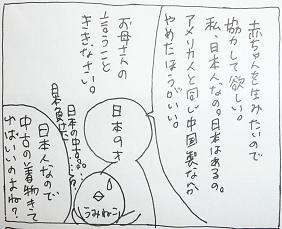 赤ちゃんを生みたいので
協力して欲しい。
私、日本人なの。日本はあるの。
アメリカ人と同じ中国製なんか
やめたほうがいい。
お母さんの
言うこと
ききなさい。
日本の才
日本の中古品
日本負けた
うみねこ
日本人なので
中古の着物きて
ればいいのよね?